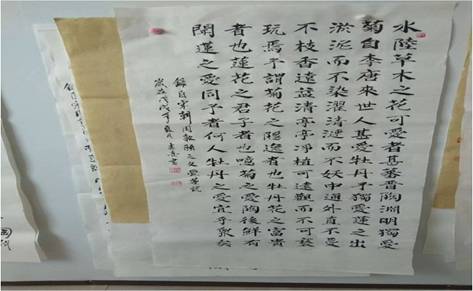 水陸草木之花可愛者甚蕃晋陶淵明獨愛
菊自李唐來世人甚愛牡丹予獨愛蓮之出
淤泥而不染濯清漣而不妖中通外直不蔓
不枝香遠益清亭亭淨植可遠觀而不可褻
玩焉予謂菊花之隱逸者也牡丹花之富貴
者也蓮花之君子者也噫菊之愛陶後鮮有
聞蓮之愛同予者何人牡丹之愛宜乎衆矣
錄自宋朝周敦頤之文
歲在戊戌年夏月 書